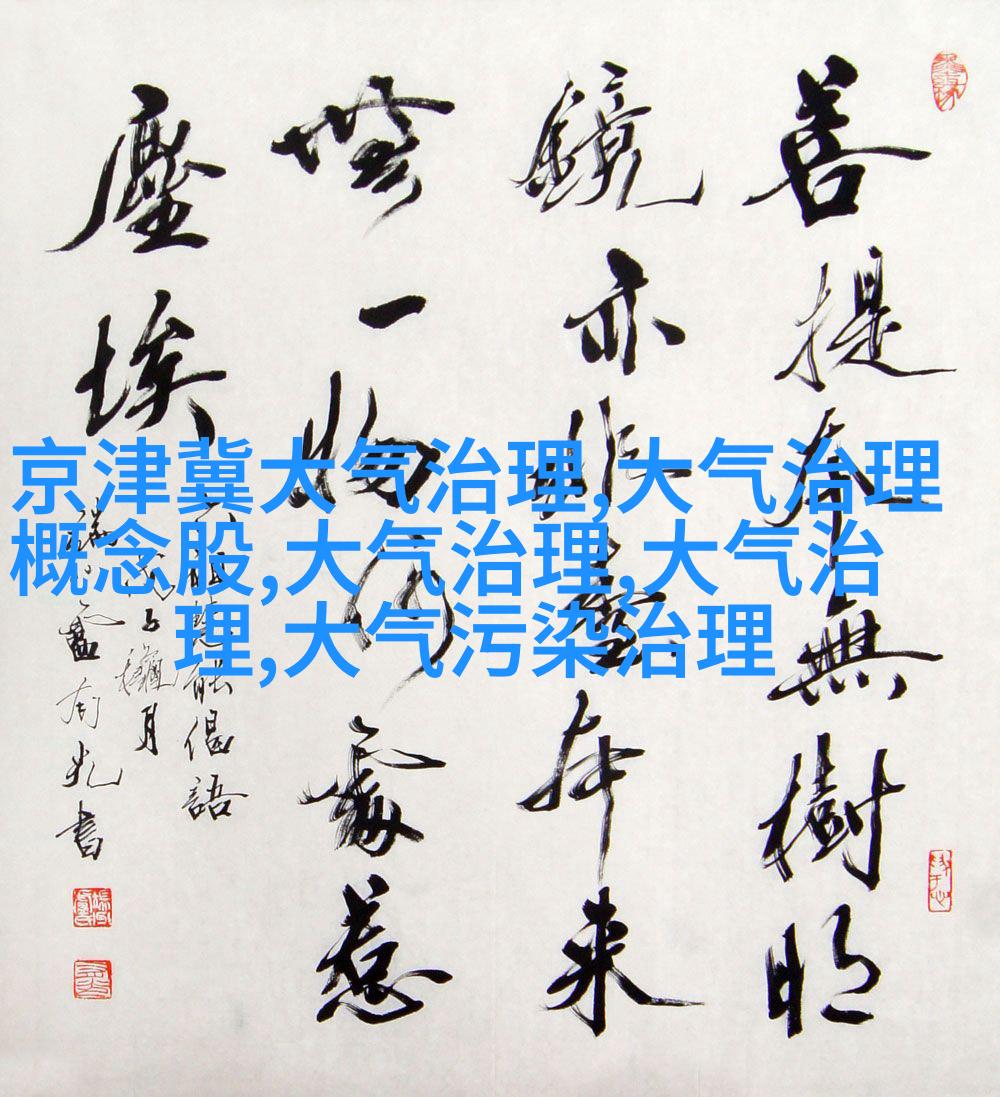 菩提本無樹明
鏡亦非臺本來
無一物何處惹
塵埃
六祖慧能偈語
月
書
京津冀大气治理,大气治理
概念股,大气治理,大气治
理,大气污染治理